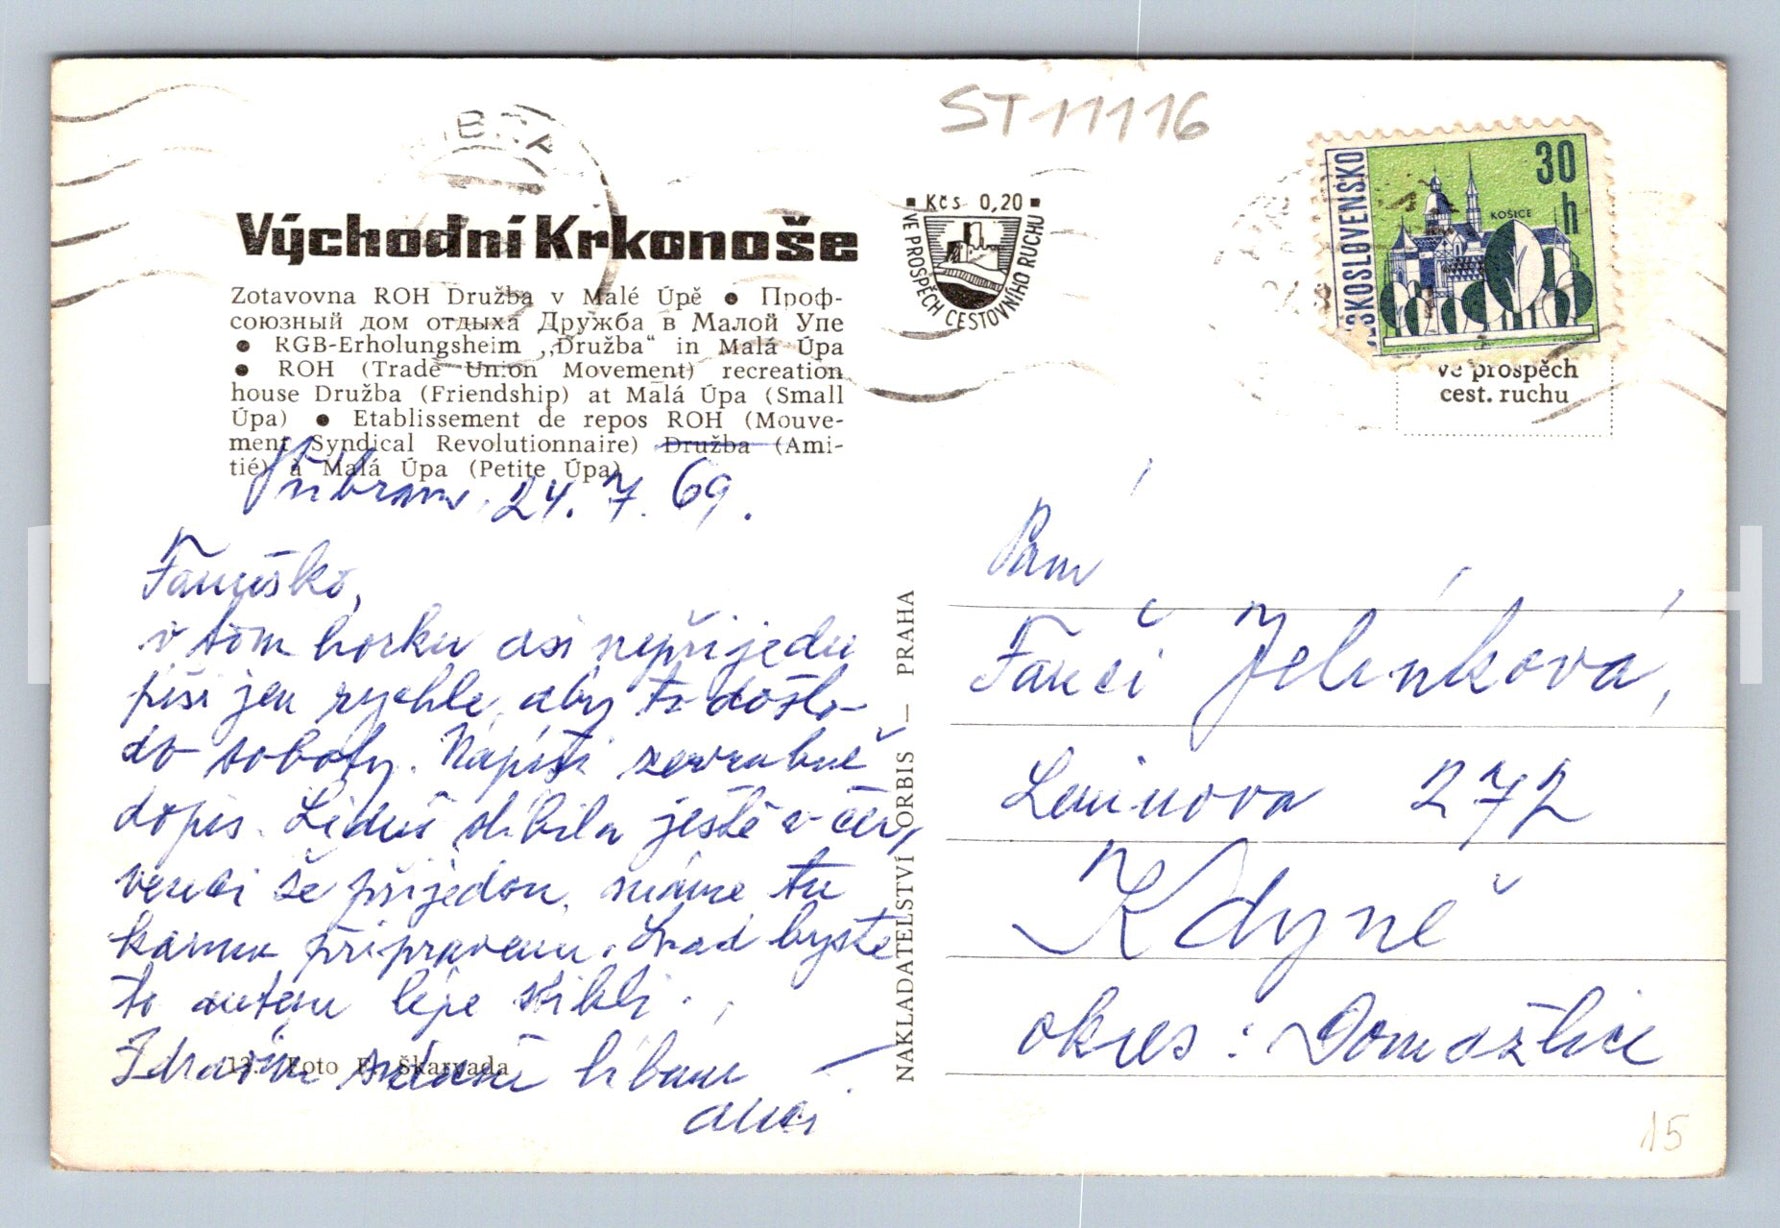 ST11116
Východní Krkonoše
Zotavovna ROH Družba v Malé Úpě ● Проф-
союзный дом отдыха Дружба в Малой Упе
● RGB-Erholungsheim „Družba“ in Malá Úpa
● ROH (Trade Union Movement) recreation
house Družba (Friendship) at Malá Úpa (Small
Úpa) ● Etablissement de repos ROH (Mouve-
ment Syndical Revolutionnaire) Družba (Ami-
tié) à Malá Úpa (Petite Úpa)
Kčs 0,20
VE PROSPĚCH CESTOVNÍHO RUCHU
ČESKOSLOVENSKO
30 h
KOŠICE
ve prospěch
cest. ruchu
Příbram, 24. 7. 69.
Fanuško,
v tom horku asi nepřijedu
píši jen rychle, aby to došlo
do soboty. Napíši
dopis. Liduš slíbila ještě v čer,
venci že přijedou, máme tu
připravenu. Snad byste
to autem lépe stihli.
Zdravím srdečně líbám
Paní
Fanči Jelínková,
Leninova 272
Kdyně
okres: Domažlice
NAKLADATELSTVÍ ORBIS — PRAHA
Foto Škarvada
15